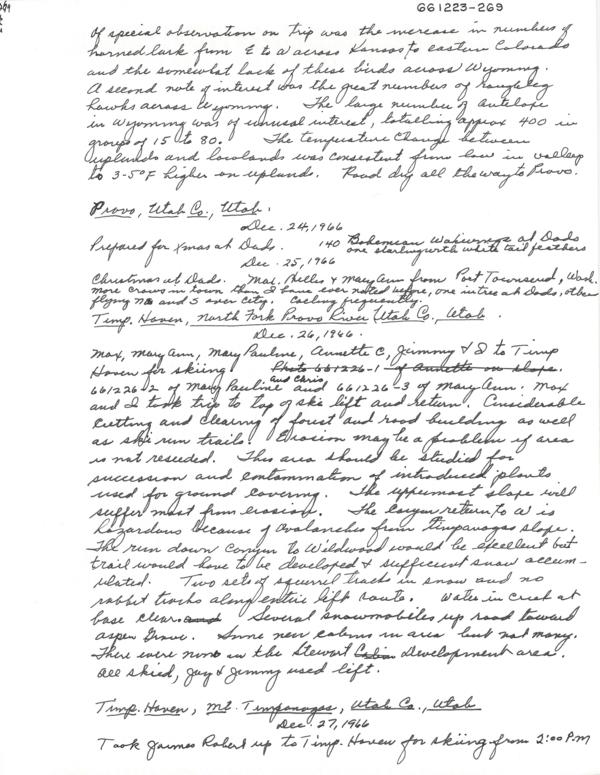 661223-269
Of special observation on trip was the increase in numbers of
horned lark from E to W across Kansas to eastern Colorado
and the somewhat lack of these birds across Wyoming.
A second note of interest was the great numbers of roughleg
hawks across Wyoming. The large number of antelope
in Wyoming was of unusual interest, totalling approx 400 in
groups of 15 to 80. The temperature change between
uplands and lowlands was consistent from low in valleys
to 3-5°F higher on uplands. Road dry all the way to Provo.
Provo, Utah Co., Utah.
Dec. 24, 1966
Prepared for Xmas at Dads. 140 Bohemian Waxwings at Dads
one starling with white tail feathers
Dec. 25, 1966
Christmas at Dads. Max, Hilles & Mary Ann from Port Townsend, Wash.
more crows in town than I have ever noted before, one in tree at Dads, other
flying N and S over city. Calling frequently.
Timp. Haven, North Fork Provo River Utah Co., Utah.
Dec. 26, 1966.
Max, Mary Ann, Mary Pauline, Annette C, Jimmy & I to Timp
Haven for skiing Photo 661226-1 of Annette on slope.
661226-2 of Mary Pauline and Chris and 661226-3 of Mary Ann. Max
and I took trip to top of ski lift and return. Considerable
cutting and clearing of forest and road building as well
as ski run trails. Erosion may be a problem if area
is not reseeded. This area should be studied for
succession and contamination of introduced plants
used for ground covering. The uppermost slope will
suffer most from erosion. The canyon return to W is
hazardous because of avalanches from Timpanogas slope.
The run down Canyon to Wildwood would be excellent but
trail would have to be developed & sufficient snow accum-
ulated. Two sets of squirrel tracks in snow and no
rabbit tracks along entire lift route. Water in creek at
base clear and Several snowmobiles up road toward
aspen Grove. Some new cabins in area but not many.
There were none in the Stewart Cabin development area.
All skied, Jay & Jimmy used lift.
Timp. Haven, Mt. Timpanogas, Utah Co., Utah
Dec. 27, 1966
Took James Robert up to Timp. Haven for skiing from 2:00 P.M